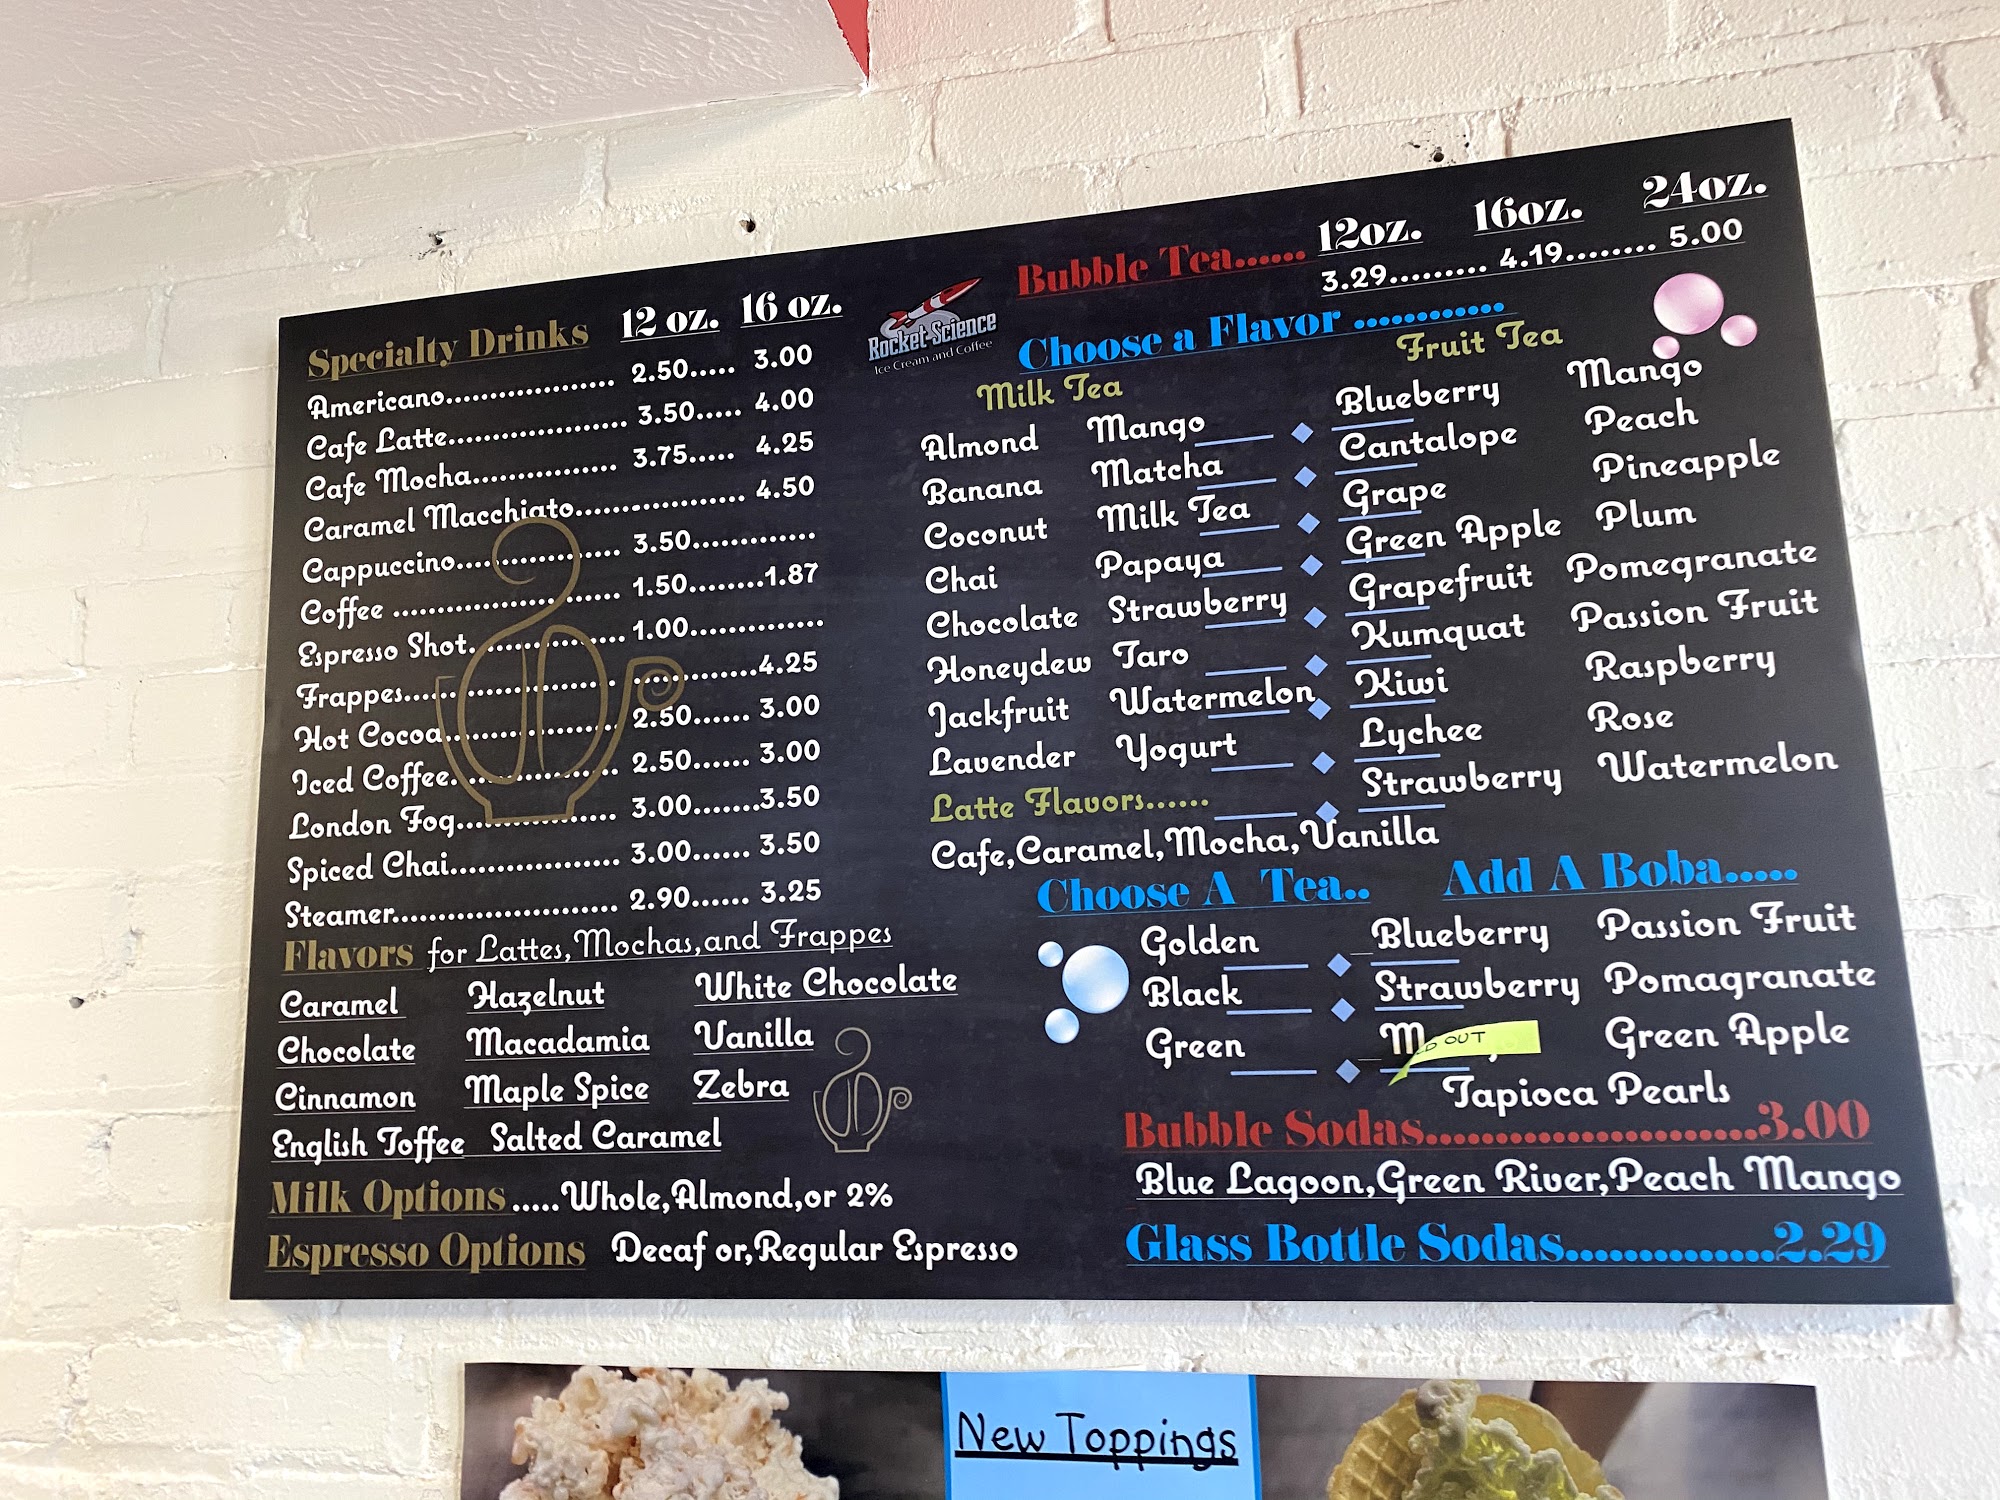 Specialty Drinks 12 oz. 16 oz.
Americano................. 2.50..... 3.00
Cafe Latte.................... 3.50..... 4.00
Cafe Mocha................ 3.75..... 4.25
Caramel Macchiato.................. 4.50
Cappuccino.................. 3.50.............
Coffee ........................ 1.50........1.87
Espresso Shot................ 1.00..............
Frappes...................................4.25
Hot Cocoa.................... 2.50...... 3.00
Iced Coffee................... 2.50...... 3.00
London Fog.................. 3.00.......3.50
Spiced Chai................... 3.00...... 3.50
Steamer......................... 2.90...... 3.25
Flavors for Lattes,Mochas,and Frappes
Caramel Hazelnut White Chocolate
Chocolate Macadamia Vanilla
Cinnamon Maple Spice Zebra
English Toffee Salted Caramel
Milk Options.....Whole,Almond,or 2%
Espresso Options Decaf or,Regular Espresso
Rocket Science
Ice Cream and Coffee
12oz. 16oz. 24oz.
Bubble Tea...... 3.29......... 4.19........ 5.00
Choose a Flavor ............
Milk Tea Fruit Tea
Almond Mango Blueberry Mango
Banana Matcha Cantalope Peach
Coconut Milk Tea Grape Pineapple
Chai Papaya Green Apple Plum
Chocolate Strawberry Grapefruit Pomegranate
Honeydew Taro Kumquat Passion Fruit
Jackfruit Watermelon Kiwi Raspberry
Lavender Yogurt Lychee Rose
Latte Flavors...... Strawberry Watermelon
Cafe,Caramel,Mocha,Vanilla
Choose A Tea.. Add A Boba.....
Golden Blueberry Passion Fruit
Black Strawberry Pomagranate
Green OUT Green Apple
Tapioca Pearls
Bubble Sodas........................3.00
Blue Lagoon,Green River,Peach Mango
Glass Bottle Sodas...............2.29
New Toppings